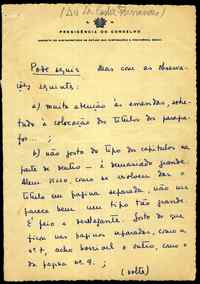 (Dr. Da Costa Fernandes)
PRESIDÊNCIA DO CONSELHO
GABINETE DO SUBSECRETÁRIO DE ESTADO DAS CORPORAÇÕES E PREVIDÊNCIA SOCIAL
Pode seguir mas com as observa-
ções seguintes:
a) muita atenção às emendas, sobre-
tudo à colocação dos títulos dos paragra-
fos ... ;
b) não gosto do tipo dos capítulos na
parte de dentro — é demasiado grande.
Além disso, como se resolveu dar o
título em página separada, não me
parece bem um tipo tão grande.
É feio e deselegante. Gosto do que
fica nas páginas separadas, como a
nº 7, acho horrível o outro, como o
da página nº 9. ;
(volte)